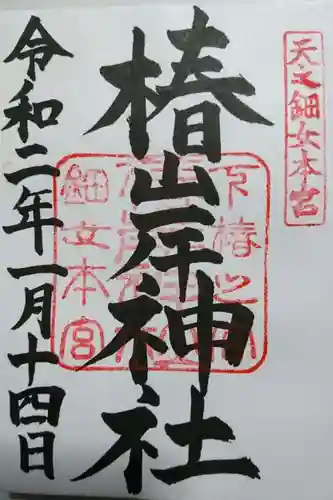 天之鈿女本宮
椿岸神社
下椿之
鈿女本宮
令和二年一月十四日